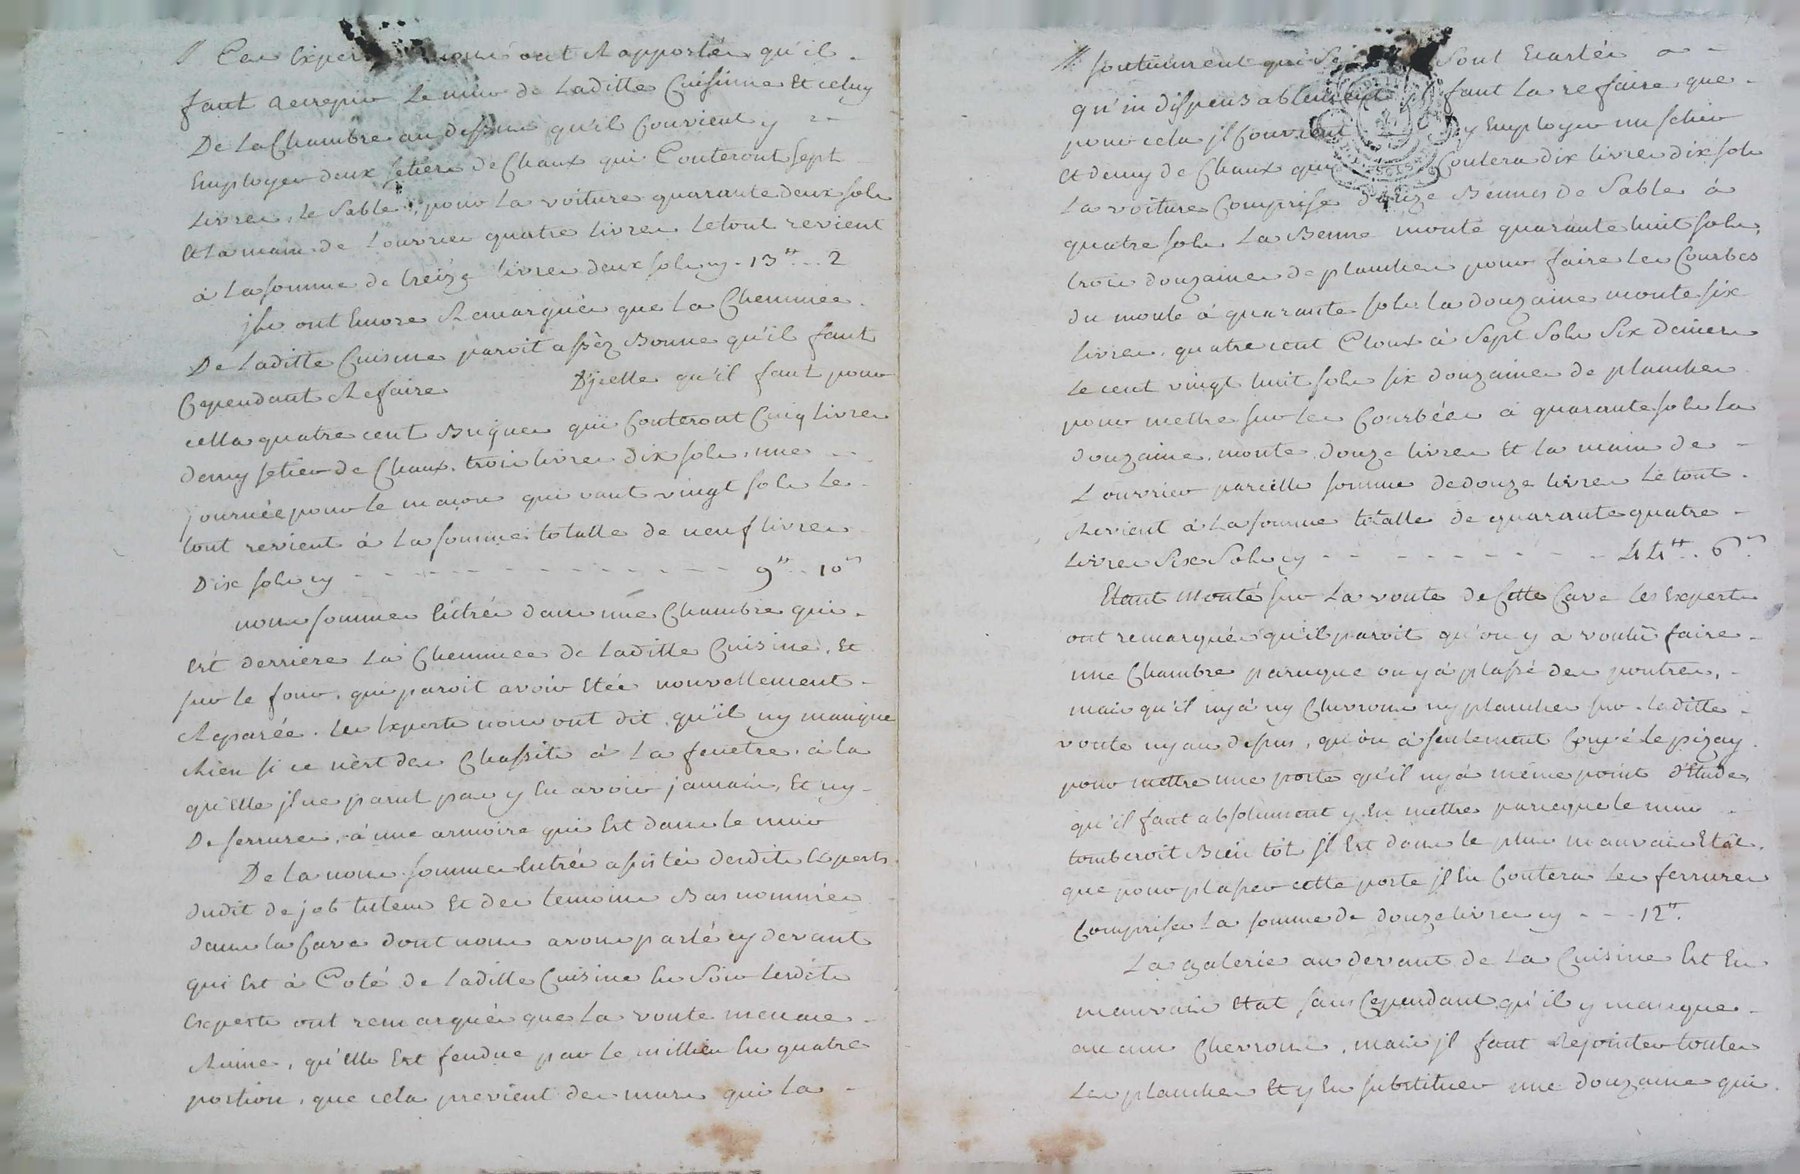 Les Experts nous ont Rapportés qu'il
faut Recrepir le mur de Laditte Cuisinne Et celuy
De La Chambre au dessus qu'il Convient y
Employer deux setiers de Chaux qui Couteront sept
Livres, le Sable, pour La voiture quarante deux sols
Et La main de Louvrier quatre Livres Le tout revient
à La somme de treize Livres deux sols cy - 13tt - 2
jls ont Encore Remarqués que La Cheminée
De Laditte Cuisine paroit assèz Bonne qu'il faut
Cependant Refaire D'jcelle qu'il faut pour
cella quatre cent Briques qui Couteront Cinq Livres
demy setier de Chaux, trois livres dix sols, une
journée pour le maçon qui vaut vingt sols Le
tout revient à La somme totalle de neuf livres
Dix sols cy - - - 9tt - 10s
nous sommes Entrés dans une Chambre qui
Est derriere La Cheminée de Laditte Cuisine, Et
sur le four, qui paroit avoir Etée nouvellement
Reparée, les Experts nous ont dit, qu'il ny manque
Rien si ce nèst des Chassits à La fenètre, à la
qu'Elle jl ne parut pas y En avoir jamais, Et ny
De serrures, à une armoire qui Est dans le mur
De la nous sommes Entrés assistés desdits Experts
dudit dejob tuteur Et des temoins Bas nommés
dans la Cave dont nous avons parlé cy devant
qui Est à Coté de laditte Cuisine En Soir lesdits
Experts ont remarqués que La voute menace
Ruine, qu'Elle Est fendue par le millieu En quatre
portion, que cela previent des murs qui La
soutiennent qui Se Sont Ecartés
qu'indispensablement faut La refaire que
pour cela jl Convient y Employer un setier
Et demy de Chaux qui Coutera dix livres dix sols
La voiture Comprise douze Bennes de Sable à
quatre sols La Benne monte quarante huit sols,
trois douzaines de planches pour faire les Courbes
du moule à quarante sols la douzaine monte six
livres, quatre cent Cloux à Sept Sols Six deniers
Le cent vingt huit sols six douzaines de planches
pour mettre sur les Courbées à quarante sols La
douzaine, monte douze livres Et la main de
L ouvrier pareille somme de douze livres Le tout
Revient à La somme totalle de quarante quatre
Livres Six Sols cy - - - 44tt - 6s
Etant Monté sur La voute de Cette Cave les Experts
ont remarqués qu'il paroit qu'on y a voulu faire
une Chambre parceque on y à plassé des poutres,
mais qu'il ny à ny Chevrons ny planches sur laditte
voute ny au dessus, qu'on à seulement Coupé le pizay
pour mettre une porte qu'il ny à même point d'Etude,
qu'il faut absolument y En mettre parceque le mur
tomberoit Bien tôt jl Est dans le plus mauvais Etat,
que pour plasser cette porte jl En Coutera Les ferrures
Comprises La somme de douze livres cy - - - 12tt
La galerie au devant de La Cuisine Est En
mauvais Etat sans Cependant qu'il y manque
aucuns Chevrons, mais jl faut Rejointer toutes
Les planches Et y En substituer une douzaine qui